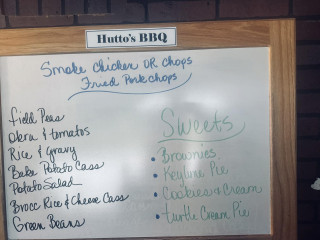 Hutto's BBQ
Smoke Chicken OR Chops
Fried Porkchops
Field Peas
Okra & tomatos
Rice & Gravy
Bake Potato Cass
Potato Salad
Brocc Rice & Cheese Cass
Green Beans
Sweets
• Brownies
• Keylime Pie
• Cookies & Cream
• Turtle Cream Pie